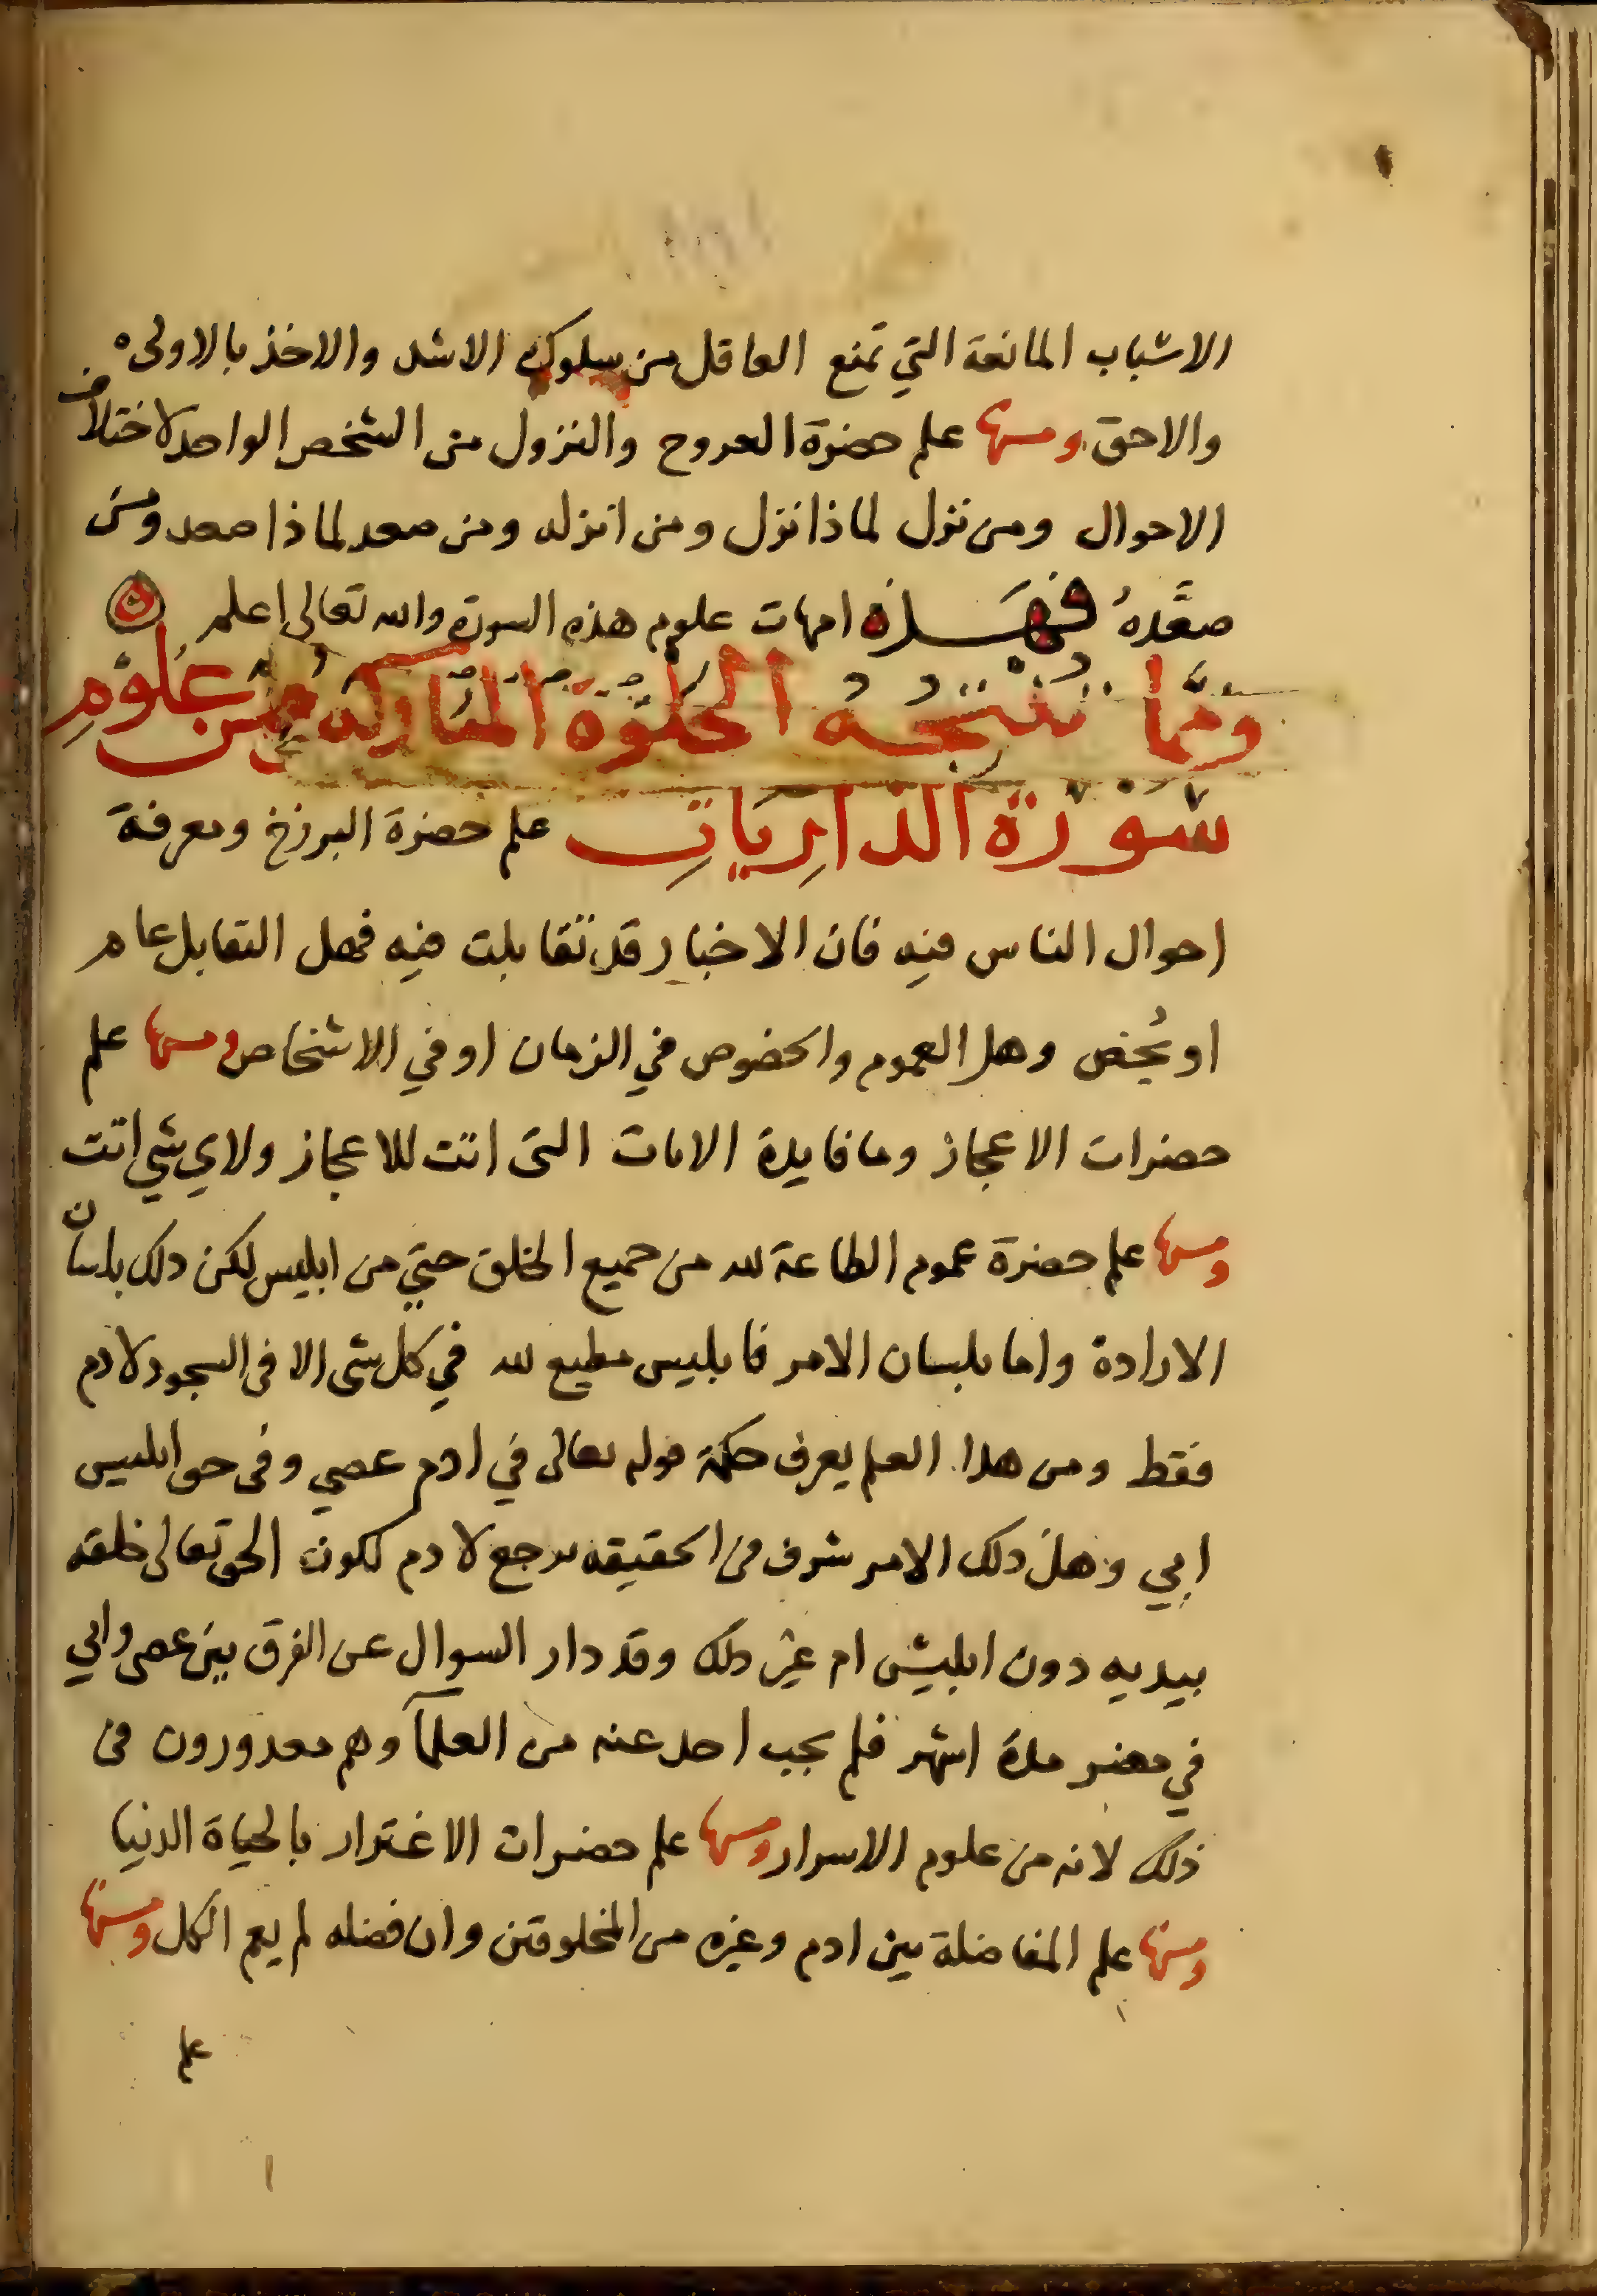 الاسباب المانعة التي تمنع العاقل من سلوك الاسد والاخذ بالاولى
والاحق ومنها علم حضرة العروج والنزول من الشخص الواحد لاختلاف
الاحوال ومن نزل لماذا نزل ومن انزله ومن صعد لماذا صعد ومن
صعَّدهُ فهذه امهات علوم هذه السورة والله تعالى اعلم
ومما تنتجه الخلوة المباركه من علوم
سورة الذاريات علم حضرة البرزخ ومعرفة
احوال الناس فيه فان الاخبار قد تقابلت فيه فهل التقابل عام
او يُخص وهل العموم والخصوص في الزمان او في الاشخاص ومنها علم
حضرات الاعجاز وما فايدة الايات التى اتت للاعجاز ولاي شي اتت
ومنها علم حضرة عموم الطاعة لله من جميع الخلق حتي من ابليس لكن ذلك بلسان
الارادة واما بلسان الامر فابليس مطيع لله في كل شى الا فى السجود لادم
فقط ومن هذا العلم يعرف حكمة قوله تعالى في ادم عصي وفى حق ابليس
ابي وهل ذلك الامر شرف في الحقيقه يرجع لادم لكون الحق تعالى خلقه
بيديه دون ابليس ام غير ذلك وقد دار السوال عن الفرق بين عصى وابي
في مصر مدة اشهر فلم يجب احد عنه من العلمآ وهم معذورون فى
ذلك لانه من علوم الاسرار ومنها علم حضرات الاغترار بالحياة الدنيا
ومنها علم المفاضلة بين ادم وغيره من المخلوقين وان فضله لم يعم الكل ومنها
علم